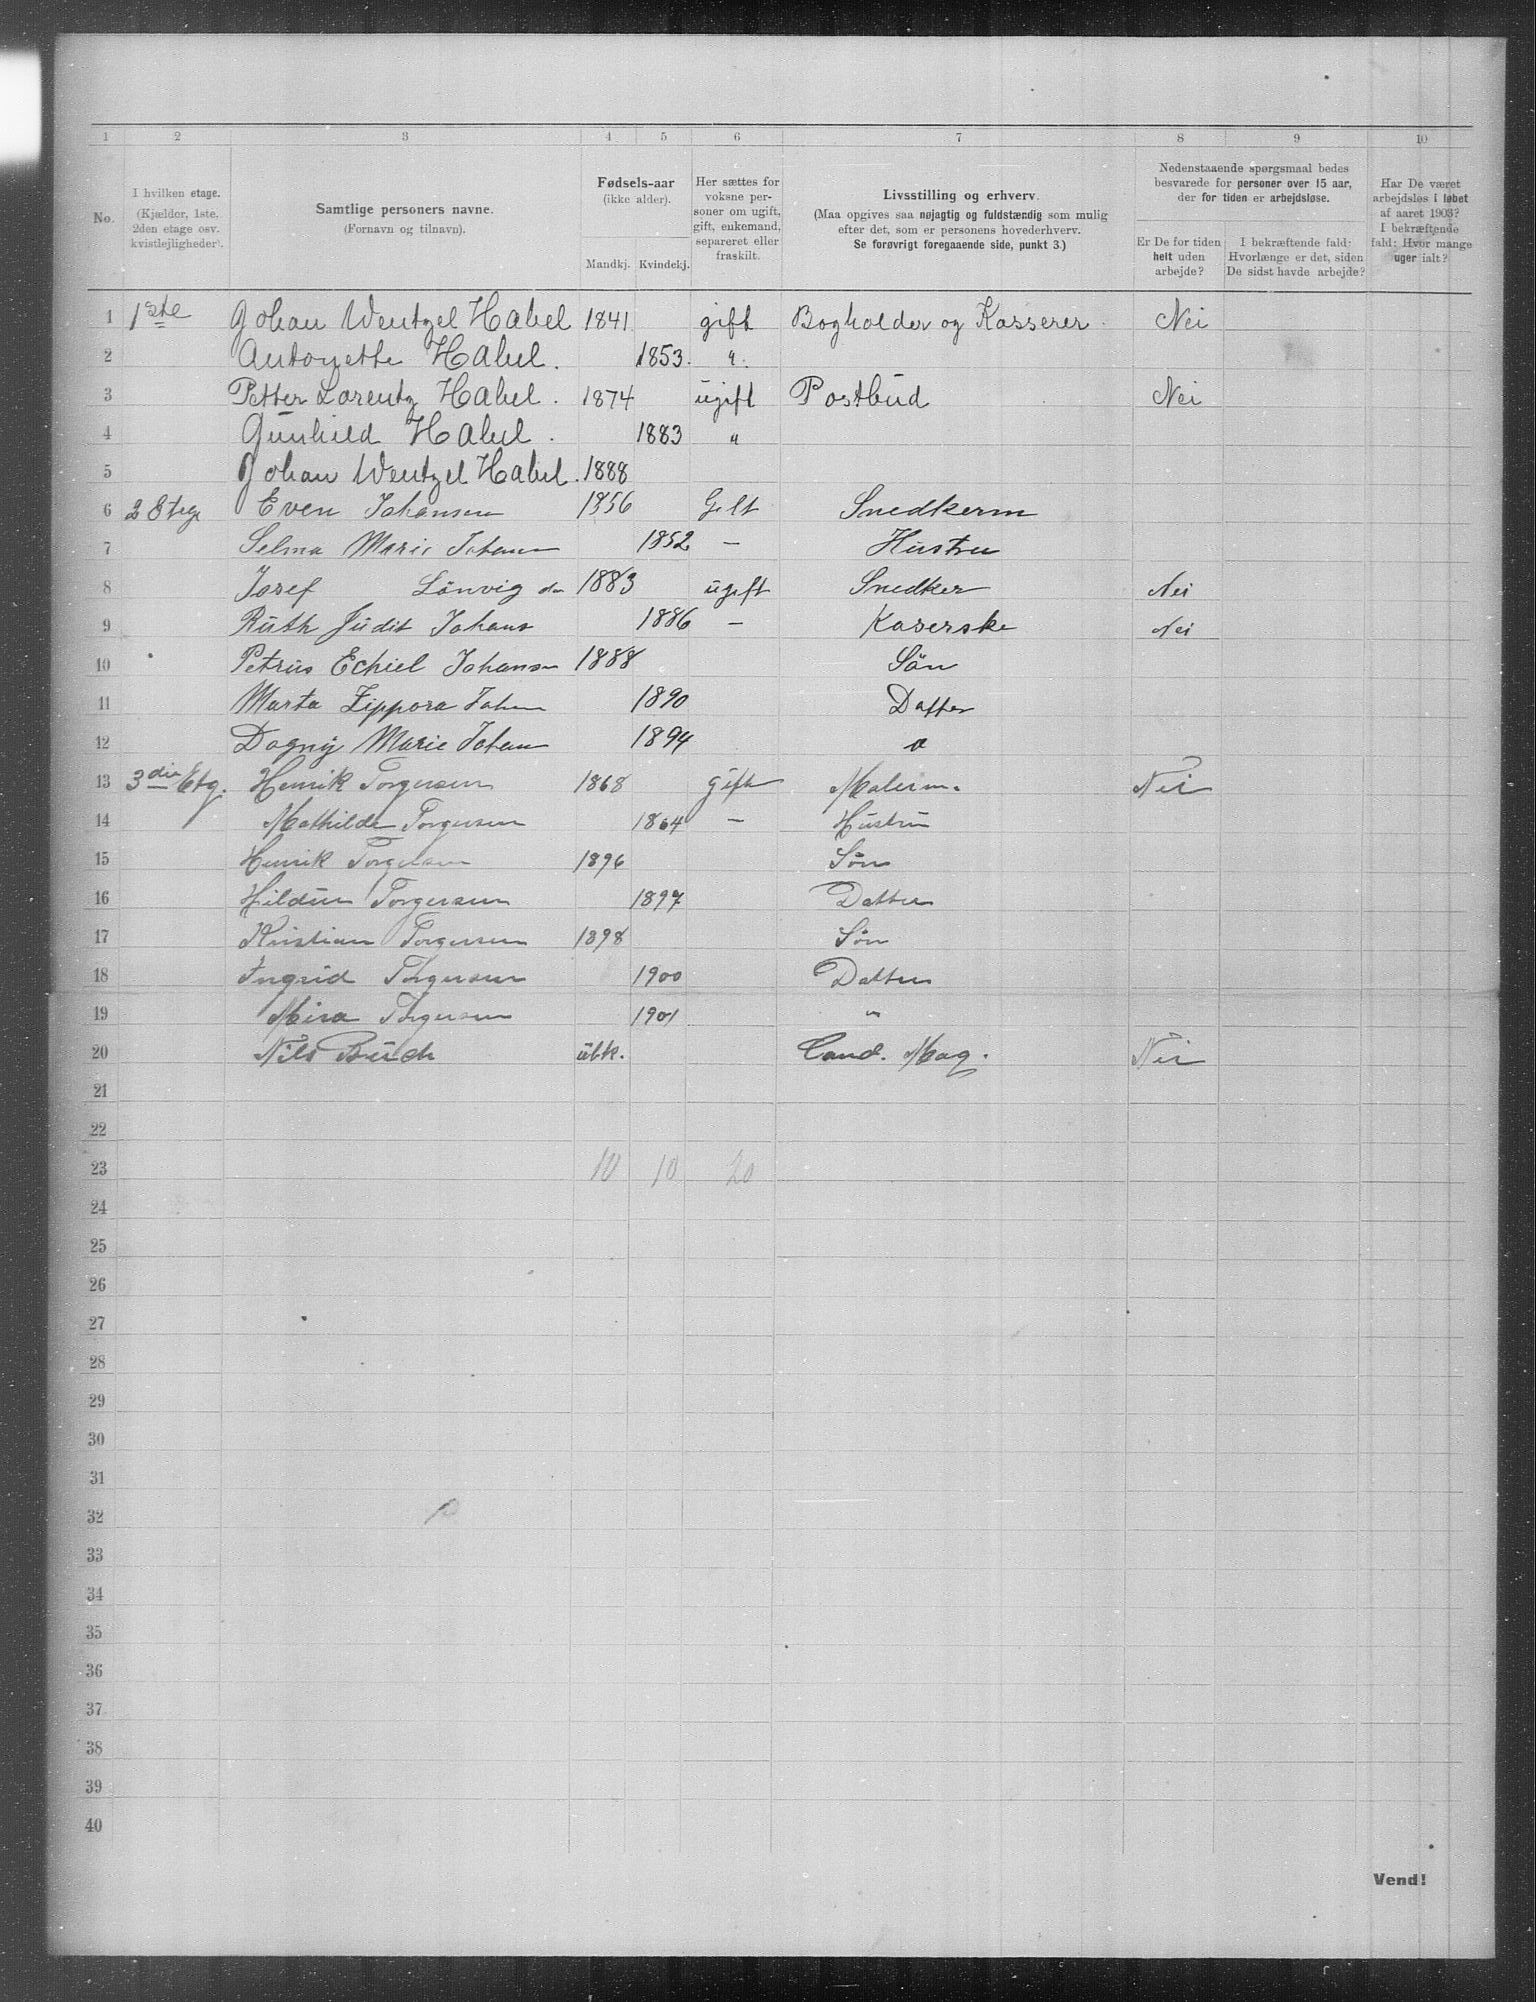 1 2 3 4 5 6 7 8 9 10
No.
I hvilken etage.
(Kjælder, 1ste, 2den etage osv. kvistlejligheder).
Samtlige personers navne.
(Fornavn og tilnavn).
Fødsels-aar
(ikke alder).
Mandkj. Kvindekj.
Her sættes for voksne personer om ugift, gift, enkemand, separeret eller fraskilt.
Livsstilling og erhverv.
(Maa opgives saa nøjagtig og fuldstændig som mulig
efter det, som er personens hovederhverv.
Se forøvrigt foregaaende side, punkt 3.)
Nedenstaaende spørgsmaal bedes
besvarede for personer over 15 aar,
der for tiden er arbejdsløse.
Er De for tiden helt uden arbejde?
I bekræftende fald: Hvorlænge er det, siden De sidst havde arbejde?
Har De været arbejdsløs i løbet af aaret 1903? I bekræftende fald: Hvor mange uger ialt?
1 1ste Johan Wentzel Habel 1841 gift Bogholder og Kasserer. Nei
2 Antonette Habel. 1853. "
3 Petter Lorentz Habel. 1874 ugift Postbud Nei
4 Gunhild Habel. 1883 "
5 Johan Wentzel Habel. 1888
6 2 Etag Even Johansen 1856 Gift Snedkerm
7 Selma Marie Johan 1852 — Hustru
8 Josef Lönvig do 1883 ugift Snedker Nei
9 Ruth Judit Johans 1886 — Kaserske Nei
10 Petrus Echiel Johansn 1888 Sön
11 Marta Zippora Johan 1890 Datter
12 Dagny Marie Johan 1894 "
13 3die Etg. Henrik Torgersen 1868 Gift Malerm. Nei
14 Mathilde Torgersen 1864 — Hustru
15 Henrik Torgersen 1896 Søn
16 Hildur Torgersen 1897 Datter
17 Kristian Torgersen 1898 Søn
18 Ingrid Torgersen 1900 Datter
19 Mira Torgersen 1901 "
20 Nils Buch ubk. Cand. Mag. Nei
21
22
23 10 10 20
24
25
26
27
28
29
30
31
32
33
34
35
36
37
38
39
40
Vend!